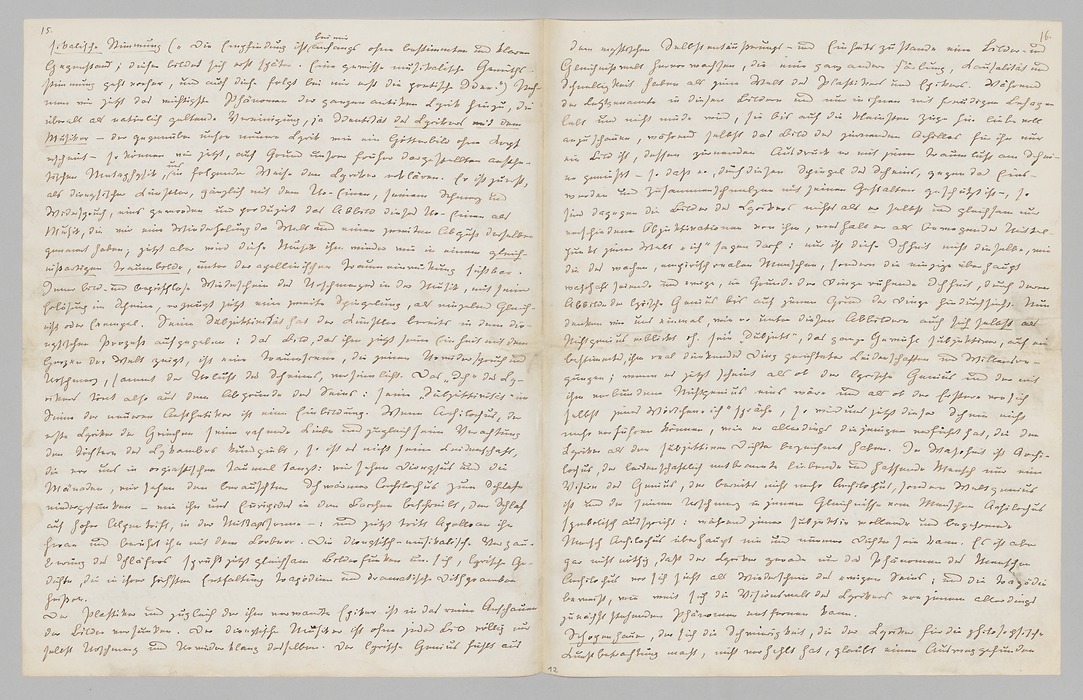 15.
sikalische Stimmung („Die Empfindung ist bei mir anfangs ohne bestimmten und klaren
Gegenstand; dieser bildet sich erst später. Eine gewisse musikalische Gemüths-
stimmung geht vorher, und auf diese folgt bei mir erst die poetische Idee.") Neh-
men wir jetzt das wichtigste Phänomen der ganzen antiken Lyrik hinzu, die
überall als natürlich geltende Vereinigung, ja Identität des Lyrikers mit dem
Musiker — der gegenüber unsre neuere Lyrik wie ein Götterbild ohne Kopf
erscheint — so können wir jetzt, auf Grund unsrer früher dargestellten aesthe-
tischen Metaphysik, uns in folgender Weise den Lyriker erklären. Er ist zuerst,
als dionysischer Künstler, gänzlich mit dem Ur-Einen, seinem Schmerz und
Widerspruch, eins geworden und producirt das Abbild dieses Ur-Einen als
Musik, die wir eine Wiederholung der Welt und einen zweiten Abguss derselben
genannt haben; jetzt aber wird diese Musik ihm wieder wie in einem gleich-
nissartigen Traumbilde, unter der apollinischen Traumeinwirkung sichtbar.
Jener bild- und begrifflose Wiederschein des Urschmerzes in der Musik, mit seiner
Erlösung im Scheine, erzeugt jetzt eine zweite Spiegelung, als einzelnes Gleich-
niss oder Exempel. Seine Subjektivität hat der Künstler bereits in dem dio-
nysischen Prozess aufgegeben: das Bild, das ihm jetzt seine Einheit mit dem
Herzen der Welt zeigt, ist eine Traumscene, die jenen Urwiderspruch und
Urschmerz, sammt der Urlust des Scheines, versinnlicht. Das „Ich" des Ly-
rikers tönt also aus dem Abgrunde des Seins: seine „Subjektivität" im
Sinne der neueren Aesthetiker ist eine Einbildung. Wenn Archilochus, der
erste Lyriker der Griechen seine rasende Liebe und zugleich seine Verachtung
den Töchtern des Lykambes kundgiebt, so ist es nicht seine Leidenschaft,
die vor uns in orgiastischem Taumel tanzt: wir sehen Dionysus und die
Mänaden, wir sehen den berauschten Schwärmer Archilochus zum Schlafe
niedergesunken — wie ihn uns Euripides in den Bacchen beschreibt, den Schlaf
auf hoher Alpentrift, in der Mittagssonne —: und jetzt tritt Apollo an ihn
heran und berührt ihn mit dem Lorbeer. Die dionysisch-musikalische Verzau-
berung des Schläfers sprüht jetzt gleichsam Bilderfunken um sich, lyrische Ge-
dichte, die in ihrer höchsten Entfaltung Tragödien und dramatische Dithyramben
heissen.
Der Plastiker und zugleich der ihm verwandte Epiker ist in das reine Anschauen
der Bilder versunken. Der dionysische Musiker ist ohne jedes Bild völlig nur
selbst Urschmerz und Urwiederklang desselben. Der lyrische Genius fühlt aus
12
16.
dem mystischen Selbstentäusserungs- und Einheitszustande eine Bilder- und
Gleichnisswelt hervorwachsen, die eine ganz andere Färbung, Causalität und
Schnelligkeit haben als jene Welt des Plastikers und Epikers. Während
der Letztgenannte in diesen Bildern und nur in ihnen mit freudigem Behagen
lebt und nicht müde wird, sie bis auf die kleinsten Züge hin liebevoll
anzuschauen, während selbst das Bild des zürnenden Achilles für ihn nur
ein Bild ist, dessen zürnenden Ausdruck er mit jener Traumlust am Schei-
ne geniesst — so dass er, durch diesen Spiegel des Scheins, gegen das Eins-
werden und Zusammenschmelzen mit seinen Gestalten geschützt ist —, so
sind dagegen die Bilder des Lyrikers nichts als er selbst und gleichsam nur
verschiedene Objektivationen von ihm, weshalb er als bewegender Mittel-
punkt jener Welt „ich" sagen darf: nur ist diese Ichheit nicht dieselbe, wie
die des wachen, empirisch-realen Menschen, sondern die einzige überhaupt
wahrhaft seiende und ewige, im Grunde der Dinge ruhende Ichheit, durch deren
Abbilder der lyrische Genius bis auf jenen Grund der Dinge hindurchsieht. Nun
denken wir uns einmal, wie er unter diesen Abbildern auch sich selbst als
Nichtgenius erblickt d.h. sein „Subjekt", das ganze Gewühl subjektiver, auf ein
bestimmtes, ihm real dünkendes Ding gerichteter Leidenschaften und Willensre-
gungen; wenn es jetzt scheint als ob der lyrische Genius und der mit
ihm verbundene Nichtgenius eins wäre und als ob der Erstere von sich
selbst jenes Wörtchen „ich" spräche, so wird uns jetzt dieser Schein nicht
mehr verführen können, wie er allerdings diejenigen verführt hat, die den
Lyriker als den subjektiven Dichter bezeichnet haben. In Wahrheit ist Archi-
lochus, der leidenschaftlich entbrannte liebende und hassende Mensch nur eine
Vision des Genius, der bereits nicht mehr Archilochus, sondern Weltgenius
ist und der seinen Urschmerz in jenem Gleichnisse vom Menschen Archilochus
symbolisch ausspricht: während jener subjektiv wollende und begehrende
Mensch Archilochus überhaupt nie und nimmer Dichter sein kann. Es ist aber
gar nicht nöthig, dass der Lyriker gerade nur das Phänomen des Menschen
Archilochus vor sich sieht als Wiederschein des ewigen Seins; und die Tragödie
beweist, wie weit sich die Visionswelt des Lyrikers von jenem allerdings
zunächst stehenden Phänomen entfernen kann.
Schopenhauer, der sich die Schwierigkeit, die der Lyriker für die philosophische
Kunstbetrachtung macht, nicht verhehlt hat, glaubt einen Ausweg gefunden